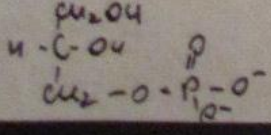 CH₂OH
H - C - OH O
CH₂ - O - P - O⁻
O⁻